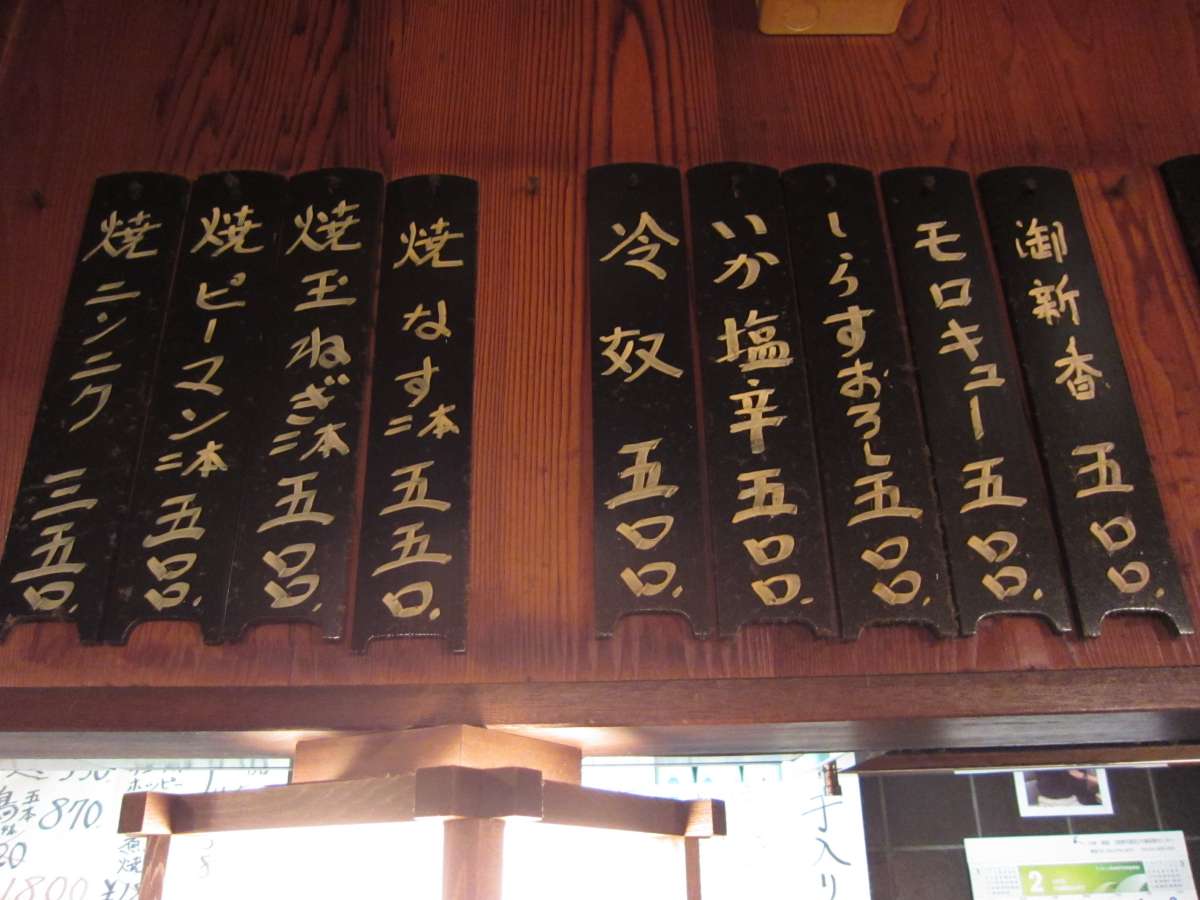 御新香 五〇〇.
モロキュー 五〇〇.
しらすおろし 五〇〇.
いか塩辛 五〇〇.
冷奴 五〇〇.
焼なす 二本 五五〇.
焼玉ねぎ 二本 五〇〇.
焼ピーマン 二本 五〇〇.
焼ニンニク 三五〇.
ホッピー
五本 870.
1800
手入り
2